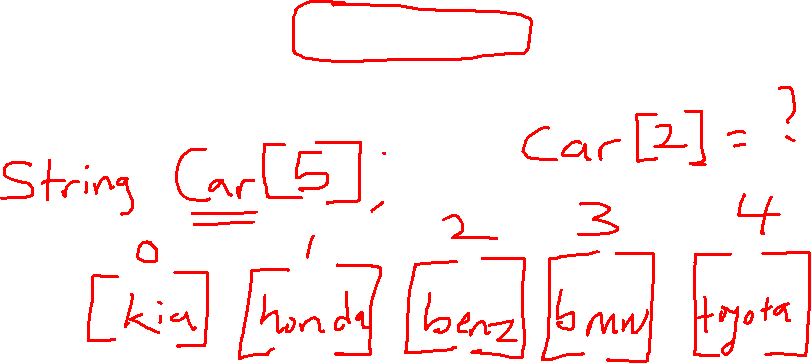 Car[2] = ?
String Car[5];
0 1 2 3 4
[kia] [honda] [benz] [bmw] [toyota]